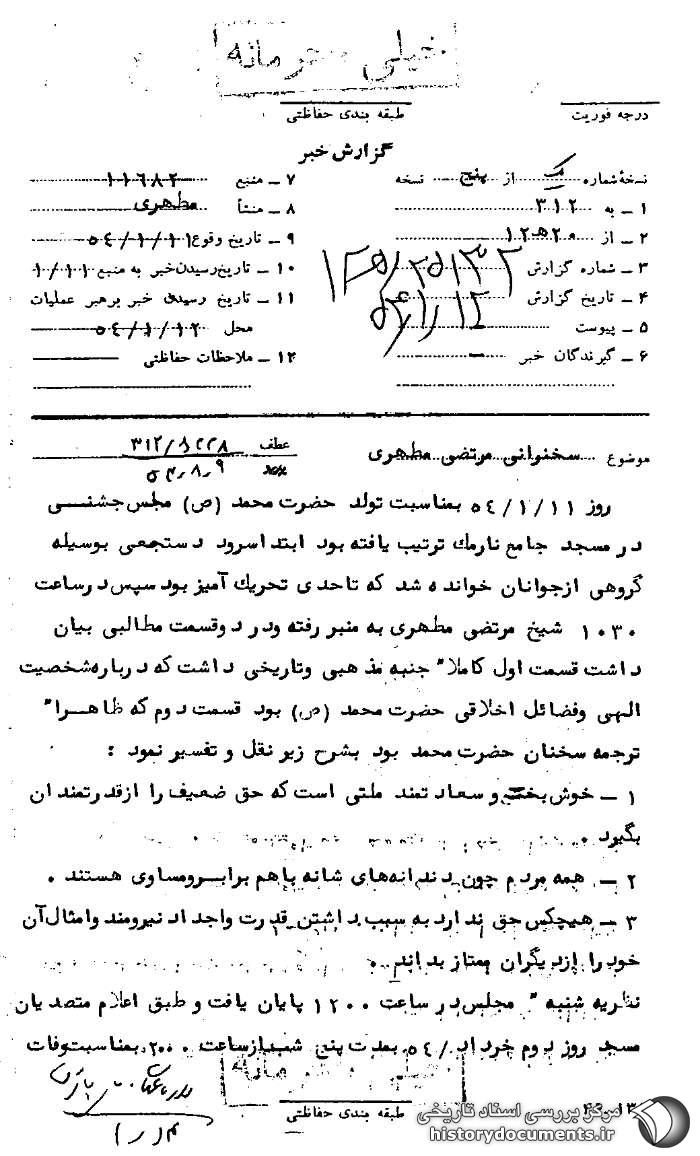 خیلی محرمانه
درجه فوریت
طبقه بندی حفاظتی
گزارش خبر
نسخهٔ شماره یک از پنج نسخه
۱ – به ۳۱۲
۲ – از ۲۰ هـ ۱۲
۳ – شماره گزارش
۴ – تاریخ گزارش
۵ – پیوست
۶ – گیرندگان خبر
۷ – منبع ۱۱۶۸۲
۸ – منشأ مطهری
۹ – تاریخ وقوع ۵۴/۱/۱۱
۱۰ – تاریخ رسیدن خبر به منبع ۱/۱۱
۱۱ – تاریخ رسیدن خبر برهبر عملیات
محل ۵۴/۱/۱۲
۱۲ – ملاحظات حفاظتی
موضوع سخنوانی مرتضی مطهری
عطف ۳۱۲/۸۲۲۸
۵۳٫۸٫۹
روز ۵۴/۱/۱۱ بمناسبت تولد حضرت محمد (ص) مجلس جشنی
در مسجد جامع نارمك ترتیب یافته بود ابتدا سرود دستجمعی بوسیله
گروهی ازجوانان خوانده شد که تاحدی تحریك آمیز بود سپس درساعت
۱۰۳۰ شیخ مرتضی مطهری به منبر رفته ودر دوقسمت مطالبی بیان
داشت قسمت اول کاملا" جنبه مذهبی وتاریخی داشت که درباره شخصیت
الهی وفضائل اخلاقی حضرت محمد (ص) بود قسمت دوم که ظاهرا"
ترجمه سخنان حضرت محمد بود بشرح زیر نقل و تفسیر نمود :
۱ – خوش بخت و سعادتمند ملتی است که حق ضعیف را ازقدرتمندان
بگیرد .
۲ – همه مردم چون دندانه‌های شانه باهم برابرومساوی هستند .
۳ – هیچکس حق ندارد به سبب داشتن قدرت واجداد نیرومند وامثال آن
خود را ازدیگران ممتاز بداند .
نظریه شنبه " مجلس در ساعت ۱۲۰۰ پایان یافت و طبق اعلام متصدیان
مسجد روز دوم خرداد /۵۴ بمدت پنج شب ازساعت ۲۰۰۰ بمناسبت وفات
خیلی محرمانه
طبقه بندی حفاظتی
مرکز بررسی اسناد تاریخی
historydocuments.ir